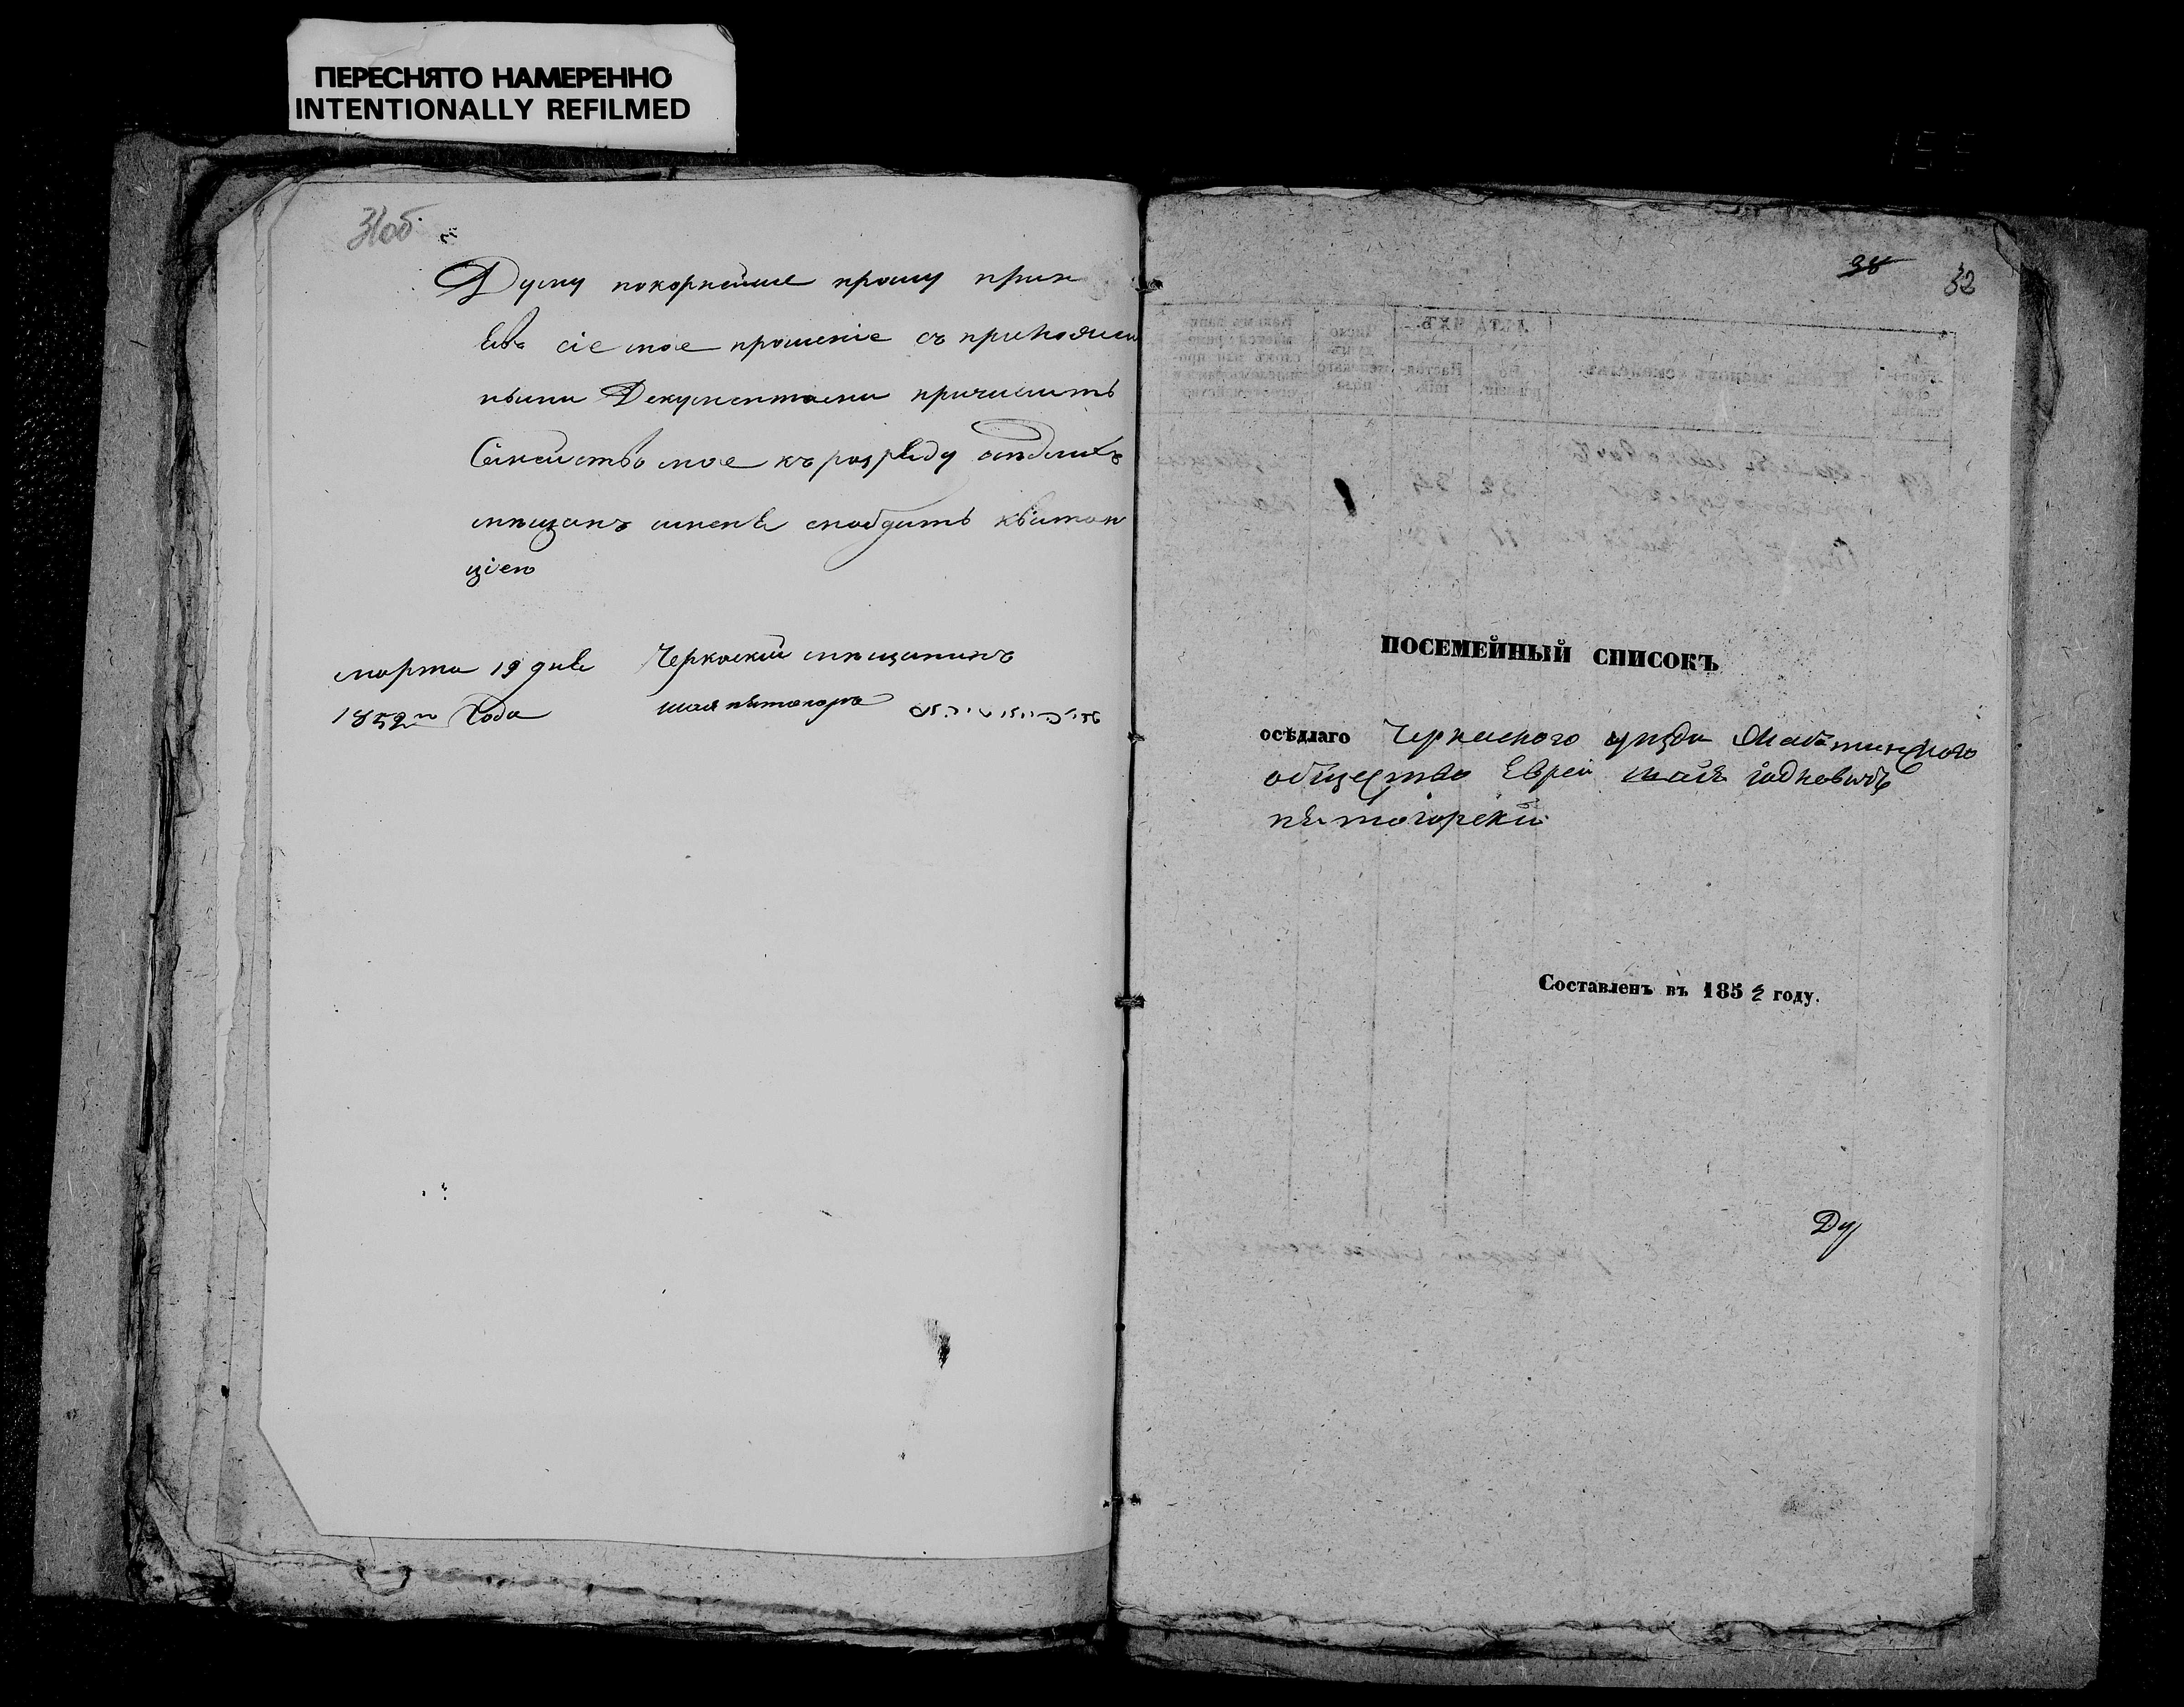 ПЕРЕСНЯТО НАМЕРЕННО
INTENTIONALLY REFILMED
31об
Думу покорнейше прошу прин
ева сіе мое прошеніе съ приложен
ными Документами причислить
Семейство мое къ розряду оседлихъ
мещанъ мене снабдить квитан
ціею
марта 19 дне Черкаский мещанинъ
1852го Года шая пятогоре
38 32
ПОСЕМЕЙНЫЙ СПИСОКЪ
осѣдлаго Черкаского уезда
общества Еврей шая
пятогорский
Составленъ въ 1852 году.
Ду